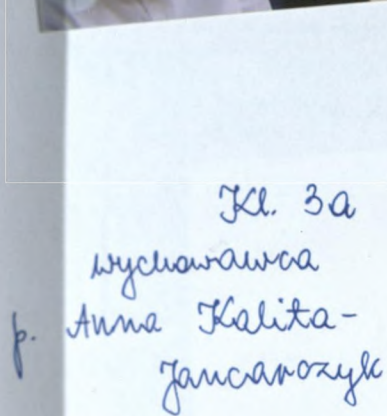 Kl. 3a
wychowawca
p. Anna Kalita-
Jancarczyk